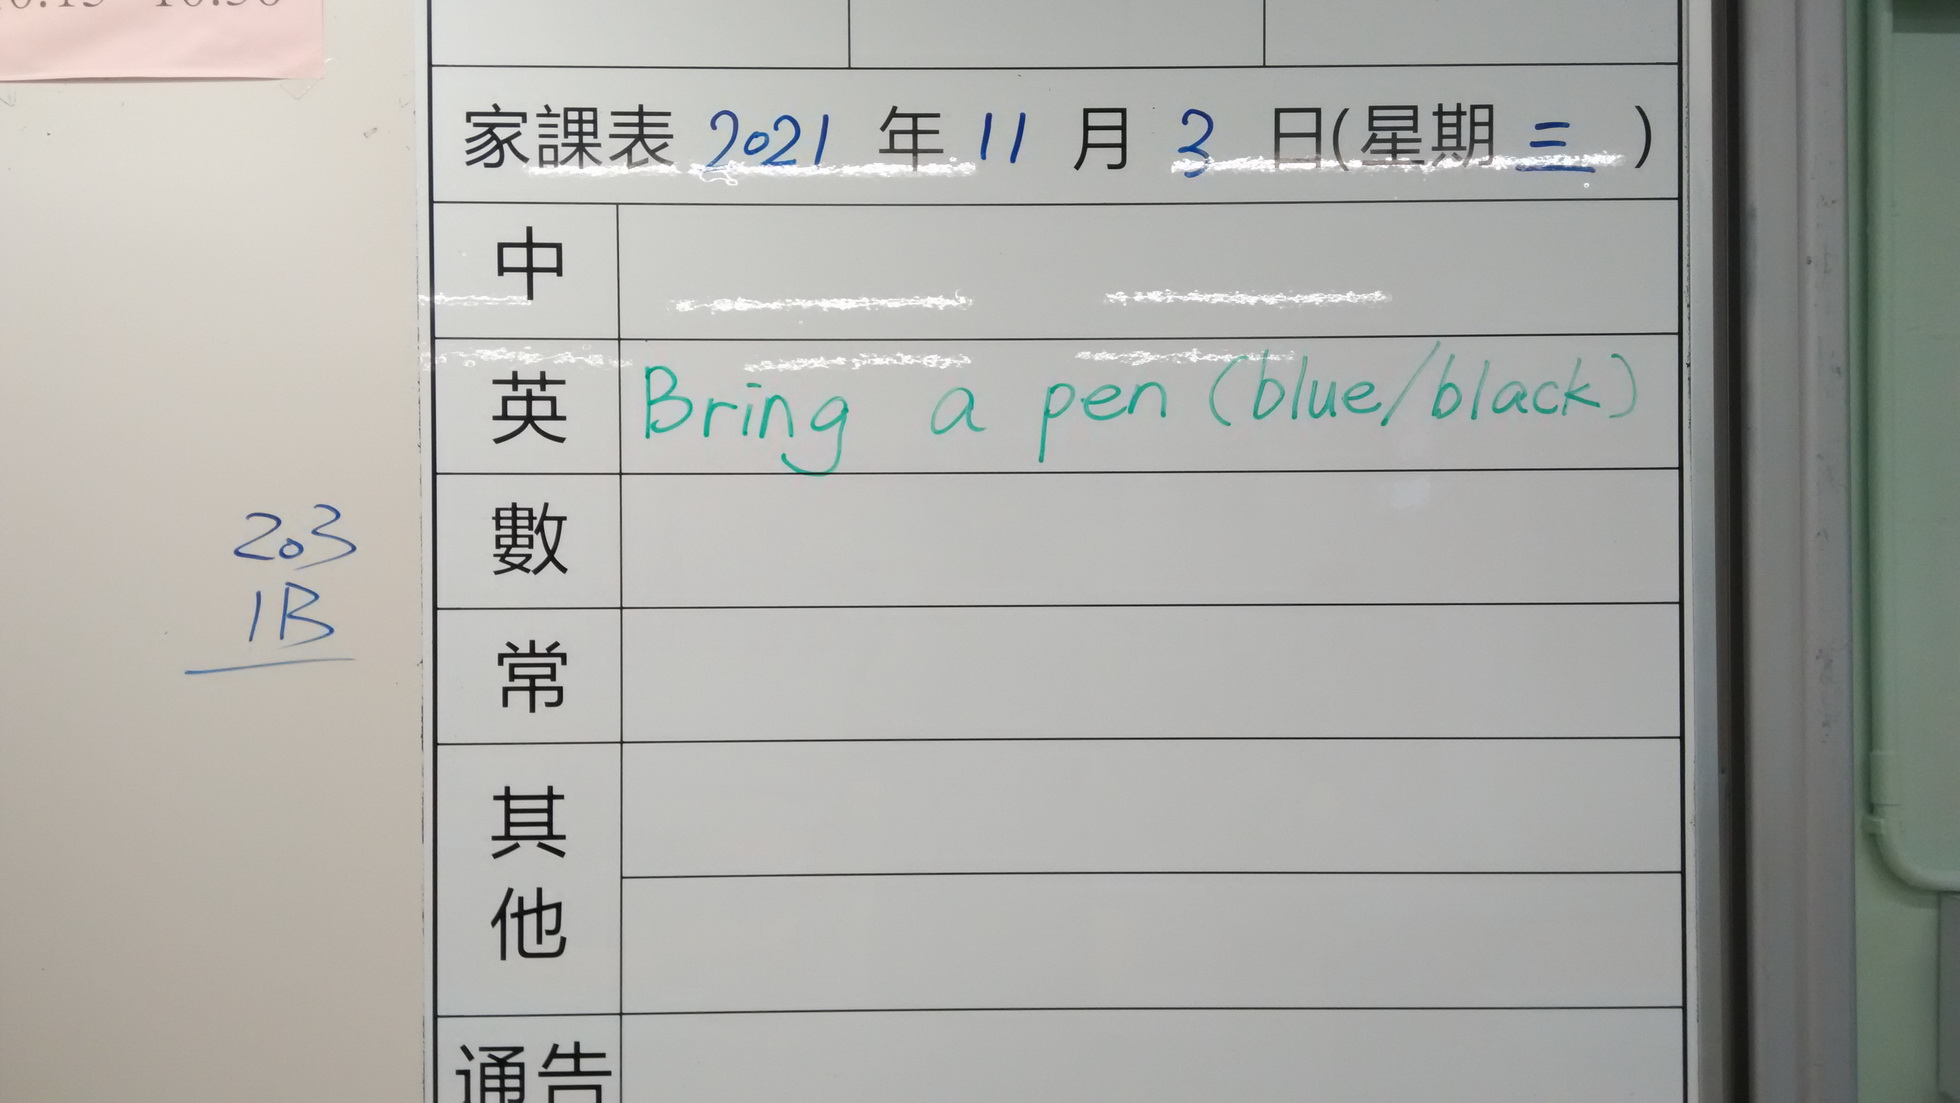 家課表 2021 年 11 月 3 日(星期 三 )
中
英 Bring a pen (blue/black)
數
常
其他
通告
203
1B